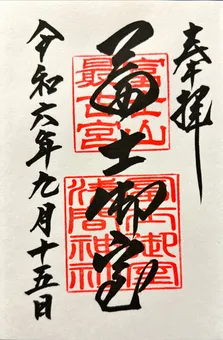 奉拝
富士山
最古宮
冨士御室
冨士御室
浅間神社
令和六年九月十五日